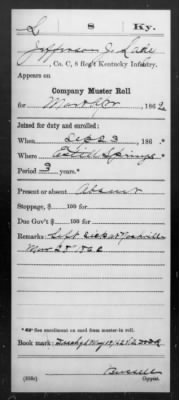 L 8 Ky.
Jefferson S. Lake
, Co. C, 8 Reg't Kentucky Infantry.
Appears on
Company Muster Roll
for Mar & Apr, 1862
Joined for duty and enrolled:
When Sep 23, 186 .*
Where Estill Springs
Period 3 years.*
Present or absent Absent
Stoppage, $ 100 for
Due Gov't $ 100 for
Remarks: Left sick at Nashville
Mar 28 1862
*☞ See enrollment on card from muster-in roll.
Book mark:
(358c) Copyist.